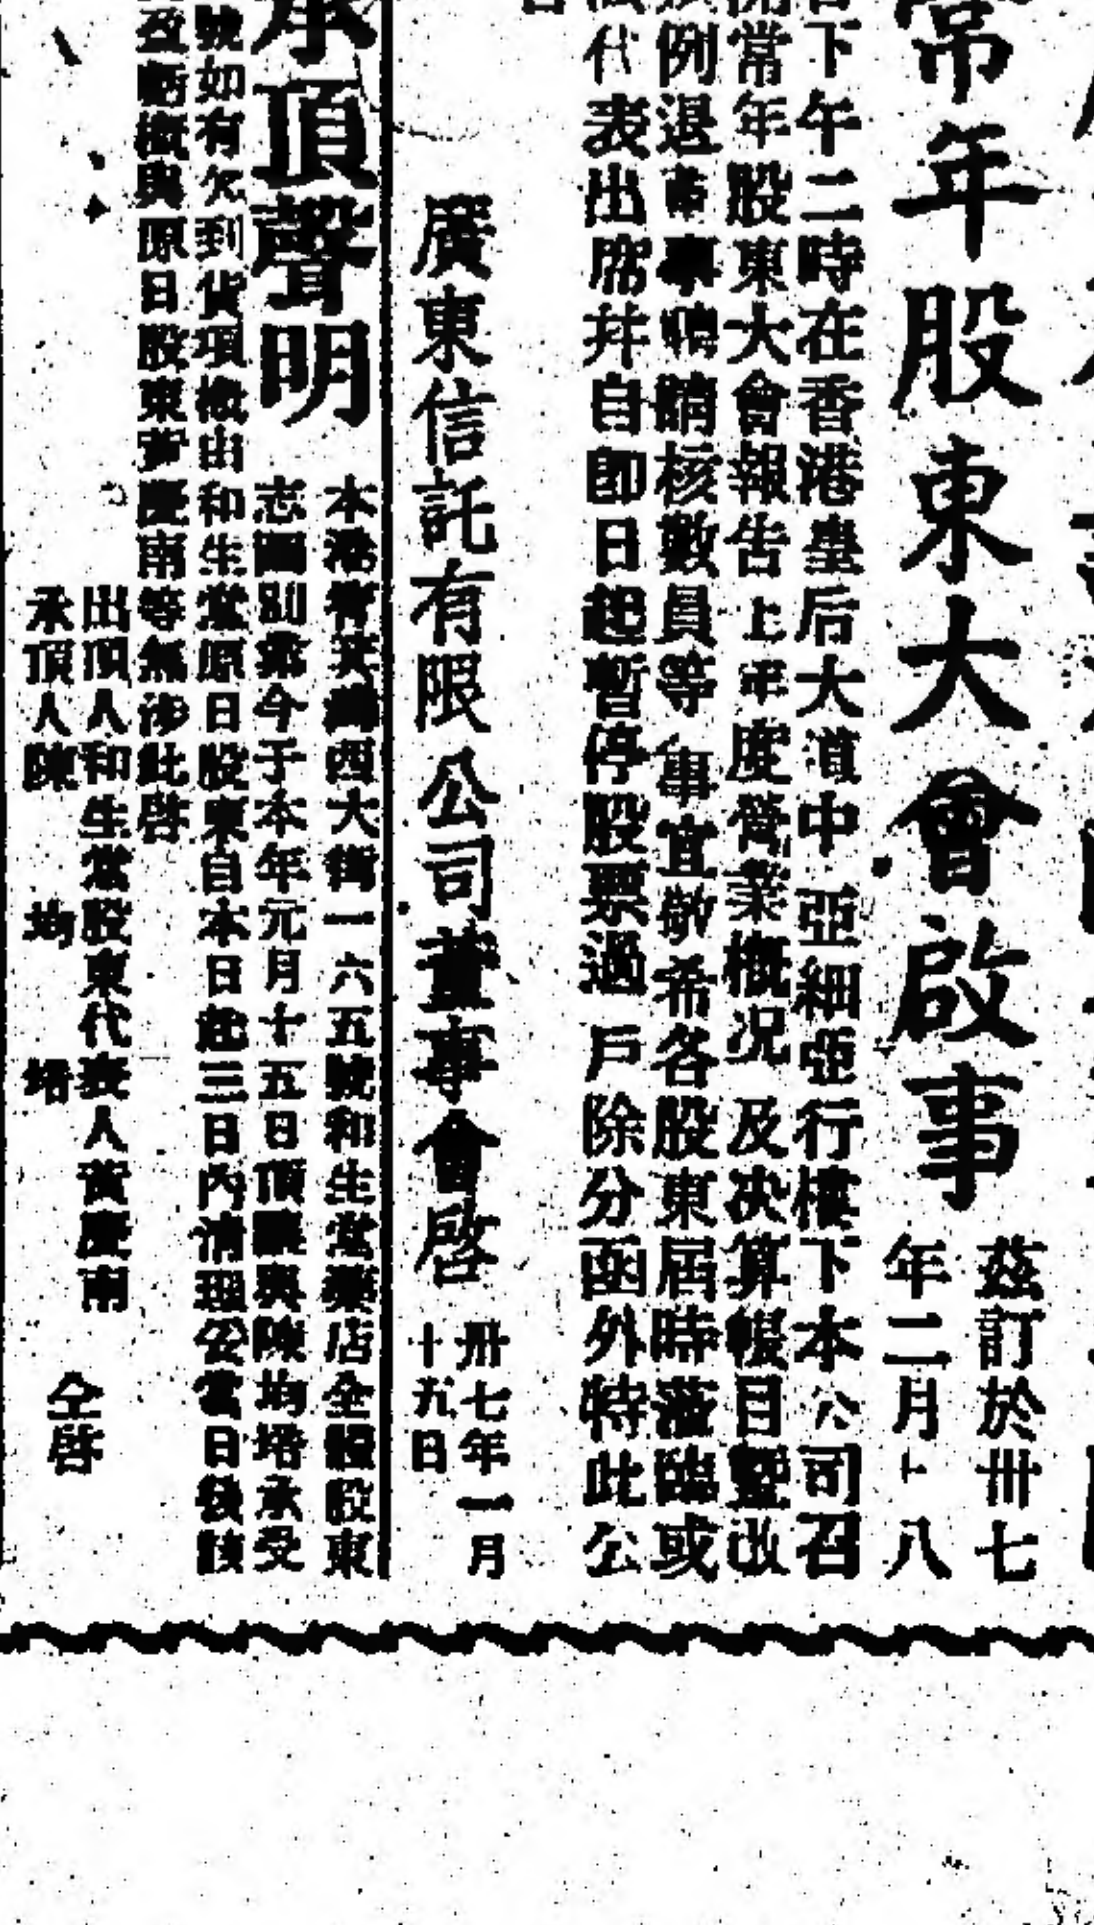 常年股東大會啟事
茲訂於卅七
年二月十八
下午二時在香港皇后大道中亞細亞行樓下本公司召
開常年股東大會報告上年度營業概況及决算帳目暨改
例退董事聘請核數員等事宜敬希各股東屆時蒞臨或
代表出席并自即日起暫停股票過戶除分函外特此公
廣東信託有限公司董事會啓
卅七年一月
十九日
承頂聲明
本港筲箕灣西大街一六五號和生堂藥店全體股東
志圖別業今于本年元月十五日頂讓與陳均培承受
和生堂原日股東自本日起三日內清理公當日後該
號如有欠到貨項概由
盈虧概與原日股東黃慶南等無涉此啓
出頂人和生堂股東代表人黃慶南
承頂人陳均培
仝啓